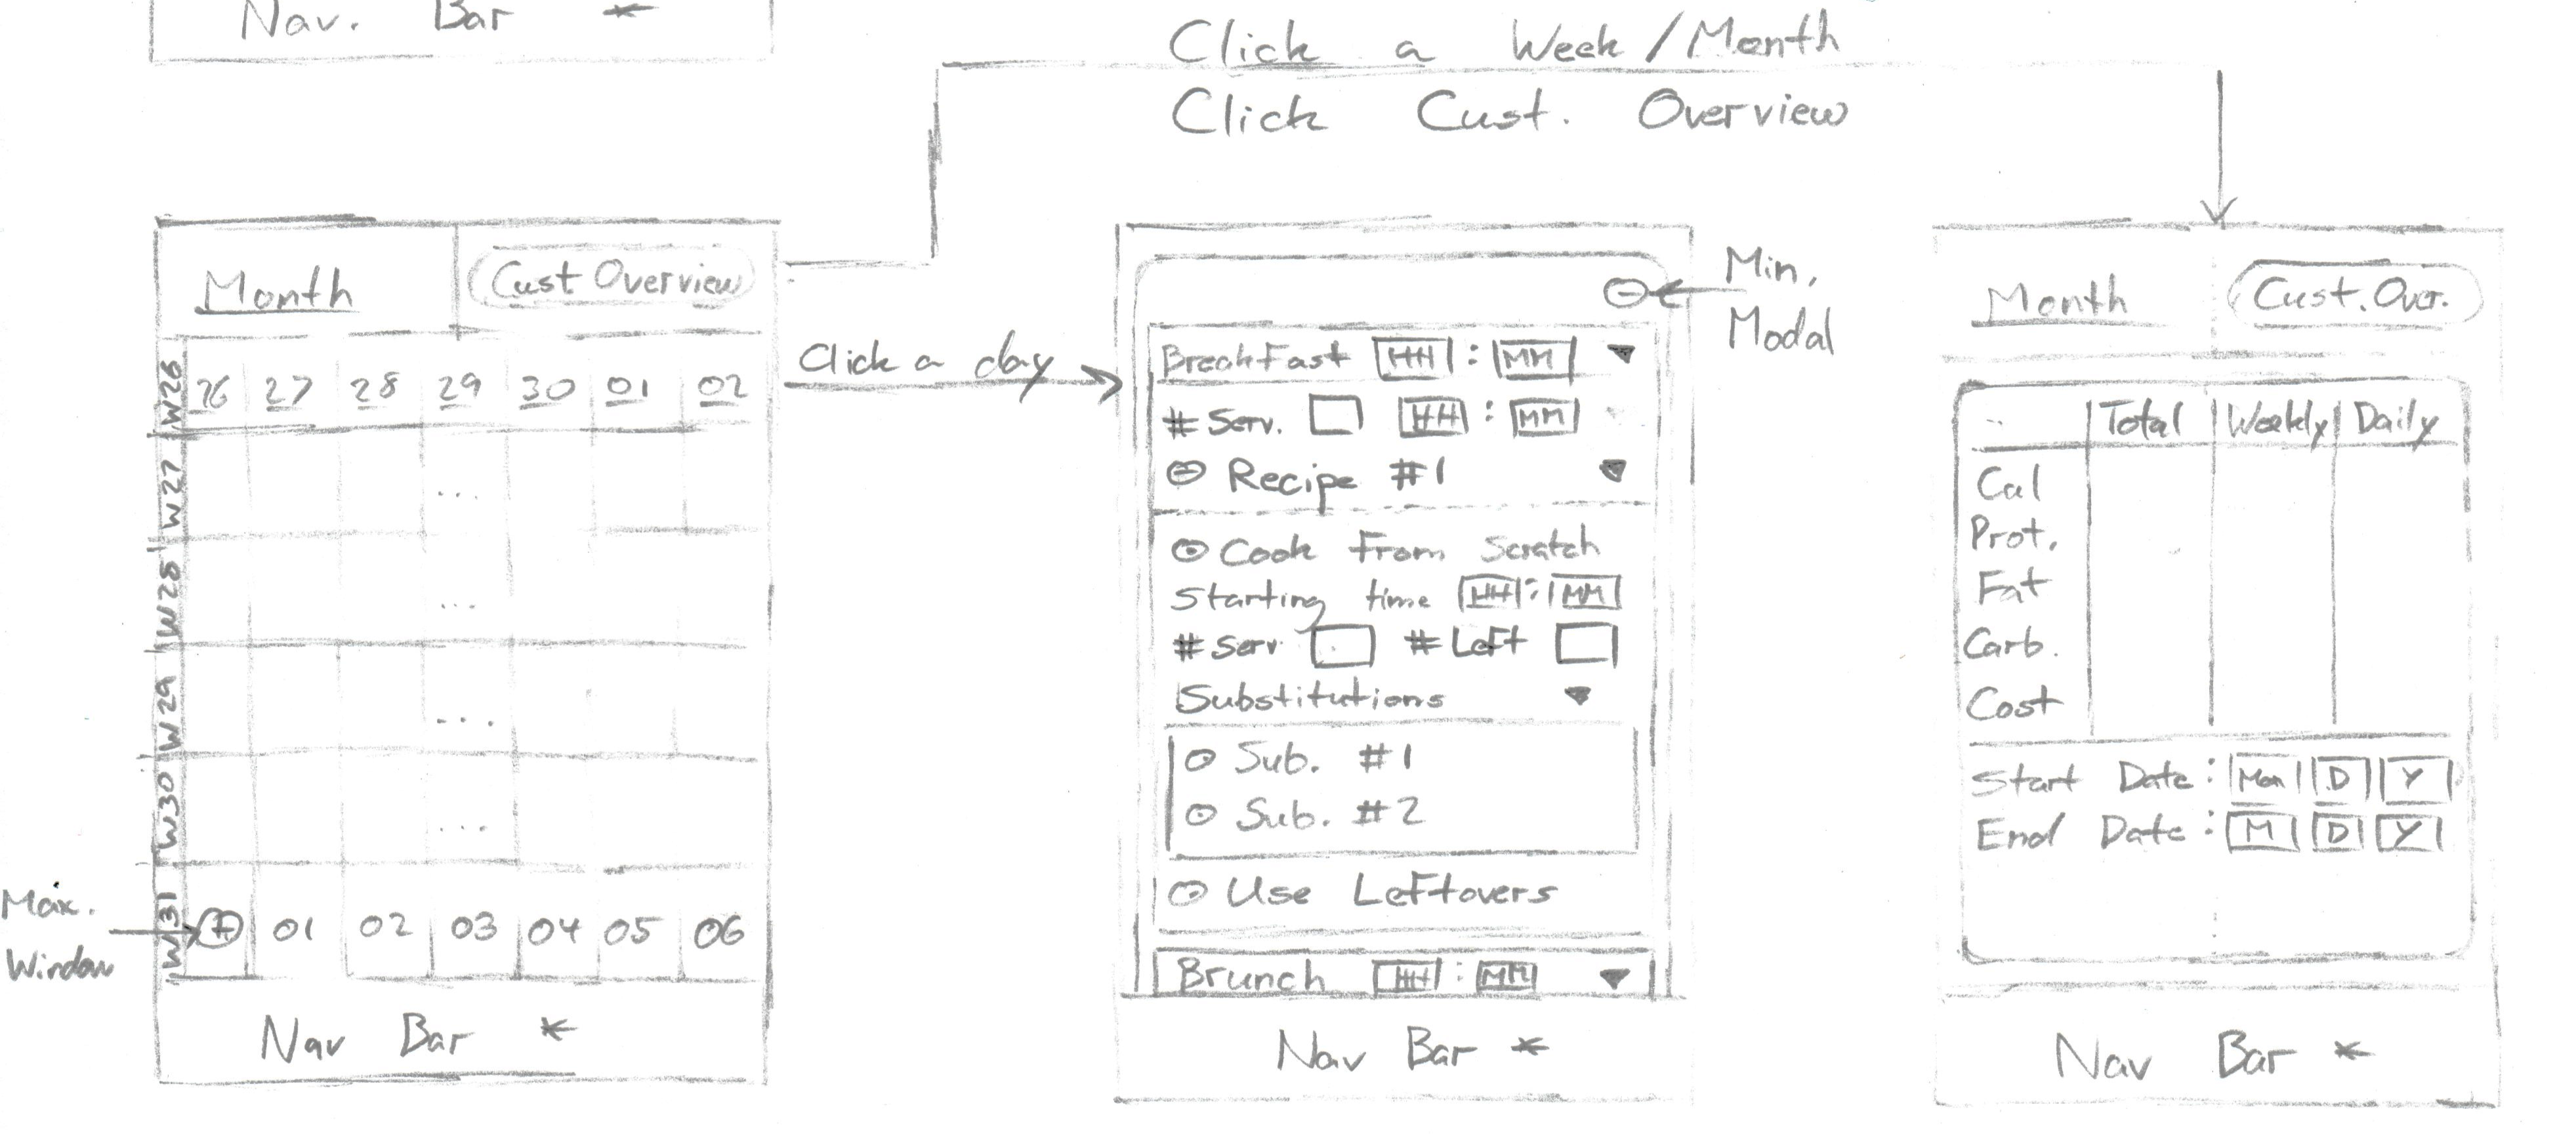 Nav. Bar *
Click a Week/Month
Click Cust. Overview
Month
Cust Overview
W26
26 27 28 29 30 01 02
W27
...
W28
...
W29
...
W30
...
W31
+ 01 02 03 04 05 06
Max.
Window
Nav Bar *
Click a day
Min.
Modal
Breakfast HH : MM
# Serv. HH : MM
Recipe #1
Cook From Scratch
Starting time HH : MM
# Serv # Left
Substitutions
Sub. #1
Sub. #2
Use Leftovers
Brunch HH : MM
Nav Bar *
Month
Cust. Over.
Total Weekly Daily
Cal
Prot.
Fat
Carb.
Cost
Start Date: Mon D Y
End Date: M D Y
Nav Bar *